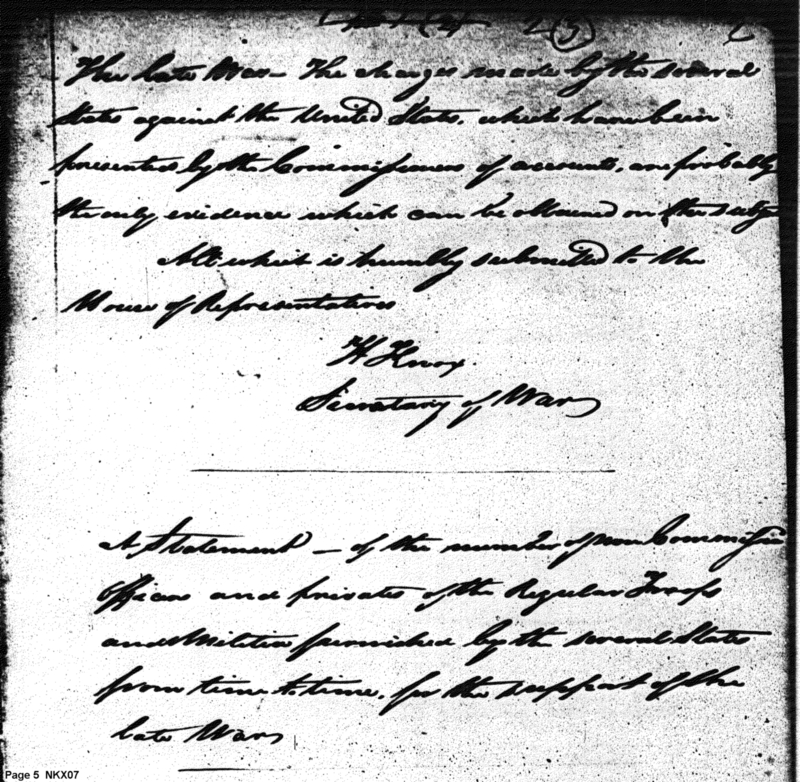 3
The late War — The charges made by the several
States against the United States, which have been
presented by the Commissioners of accounts, are probably
the only evidence which can be obtained on the
All which is humbly submitted to the
House of Representatives
H Knox.
Secretary of War
A Statement — of the number of non Commission
Officers and privates of the Regular Troops
and Militia furnished by the several States
from time to time, for the support of the
late War
Page 5 NKX07